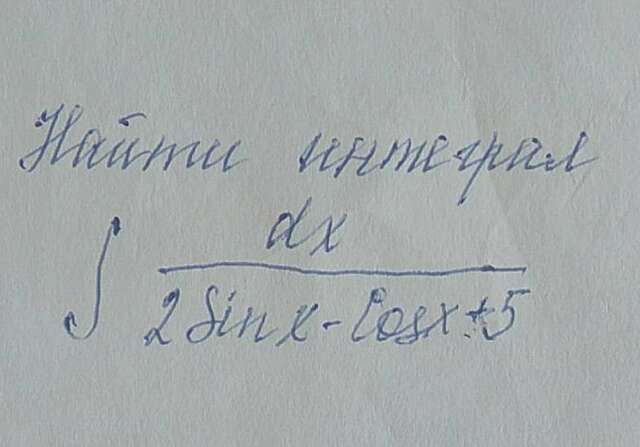 Найти интеграл
∫ dx / (2 Sin x - Cos x + 5)